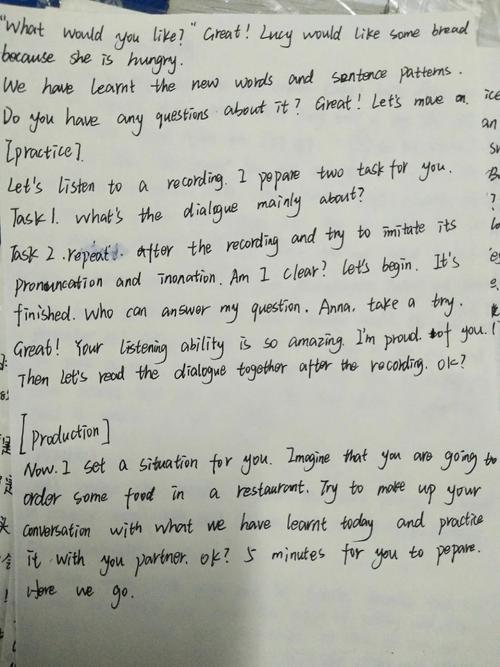 "What would you like?" Great! Lucy would like some bread
because she is hungry.
We have learnt the new words and sentence patterns.
Do you have any questions about it? Great! Let's move on.
[practice].
Let's listen to a recording. I pepare two task for you.
Task 1. what's the dialogue mainly about?
Task 2. repeat. after the recording and try to imitate its
pronuncation and inonation. Am I clear? Let's begin. It's
finished. Who can answer my question. Anna, take a try.
Great! Your listening ability is so amazing. I'm proud of you.
Then let's read the dialogue together after the recording. ok?
[production]
Now. I set a situation for you. Imagine that you are going to
order some food in a restaurant. Try to make up your
conversation with what we have learnt today and practice
it with you partner. ok? 5 minutes for you to pepare.
Here we go.
ice
an
是
是
头
会